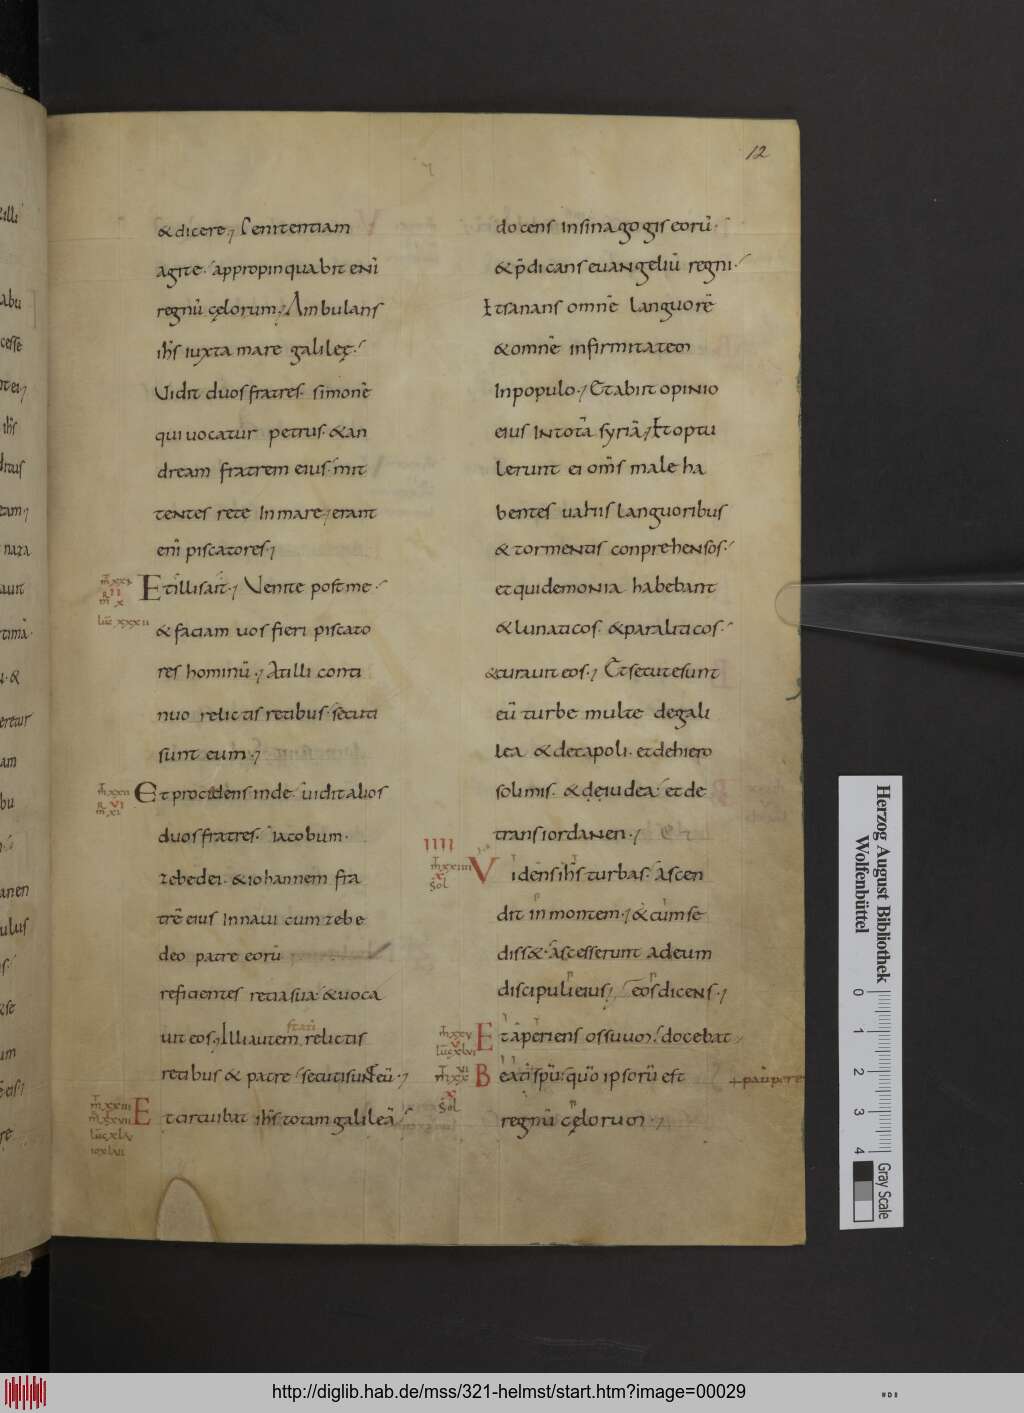 12
& dicere; Penitentiam
agite. appropinquabit eni̅
regnu̅ cęlorum; Ambulans
ih̅s iuxta mare galileę.
Vidit duos fratres. simone̅
qui uocatur petrus. & an
dream fratrem eius. mit
tentes rete In mare; erant
eni̅ piscatores;
Et illis ait; Venite post me.
& faciam uos fieri piscato
res hominu̅; At illi conti
nuo relictis retibus. secuti
sunt eum;
Et procedens inde. uidit alios
duos fratres. iacobum.
zebedei. & iohannem fra
tre̅ eius In naui cum zebe
deo patre eoru̅
reficientes retia sua. & uoca
uit eos; Illi autem relictis
retibus & patre. secuti sunt eu̅;
Et circuibat ih̅s totam galilea̅
docens In sinagogis eoru̅.
& p̅dicans euangeliu̅ regni.
Et sanans omne̅ languore̅
& omne̅ infirmitatem
In populo; Et abiit opinio
eius In tota̅ syria̅; Et optu
lerunt ei om̅s male ha
bentes uariis languoribus
& tormentis conprehensos.
et qui demonia habebant
& lunaticos. & paraliticos.
& curauit eos; Et secute sunt
eu̅ turbe multe de gali
lea & decapoli. et de hiero
solimis. & de iudea. et de
trans iordanen;
IIII
Videns ih̅s turbas. Ascen
dit in montem; & cum se
diss&. Accesserunt ad eum
discipuli eius; eos dicens;
Et aperiens os suum. docebat
Beati sp̅u. quo̅ ipsoru̅ est
regnu̅ cęlorum;
Herzog August Bibliothek
Wolfenbüttel
0 1 2 3 4
Gray Scale
http://diglib.hab.de/mss/321-helmst/start.htm?image=00029